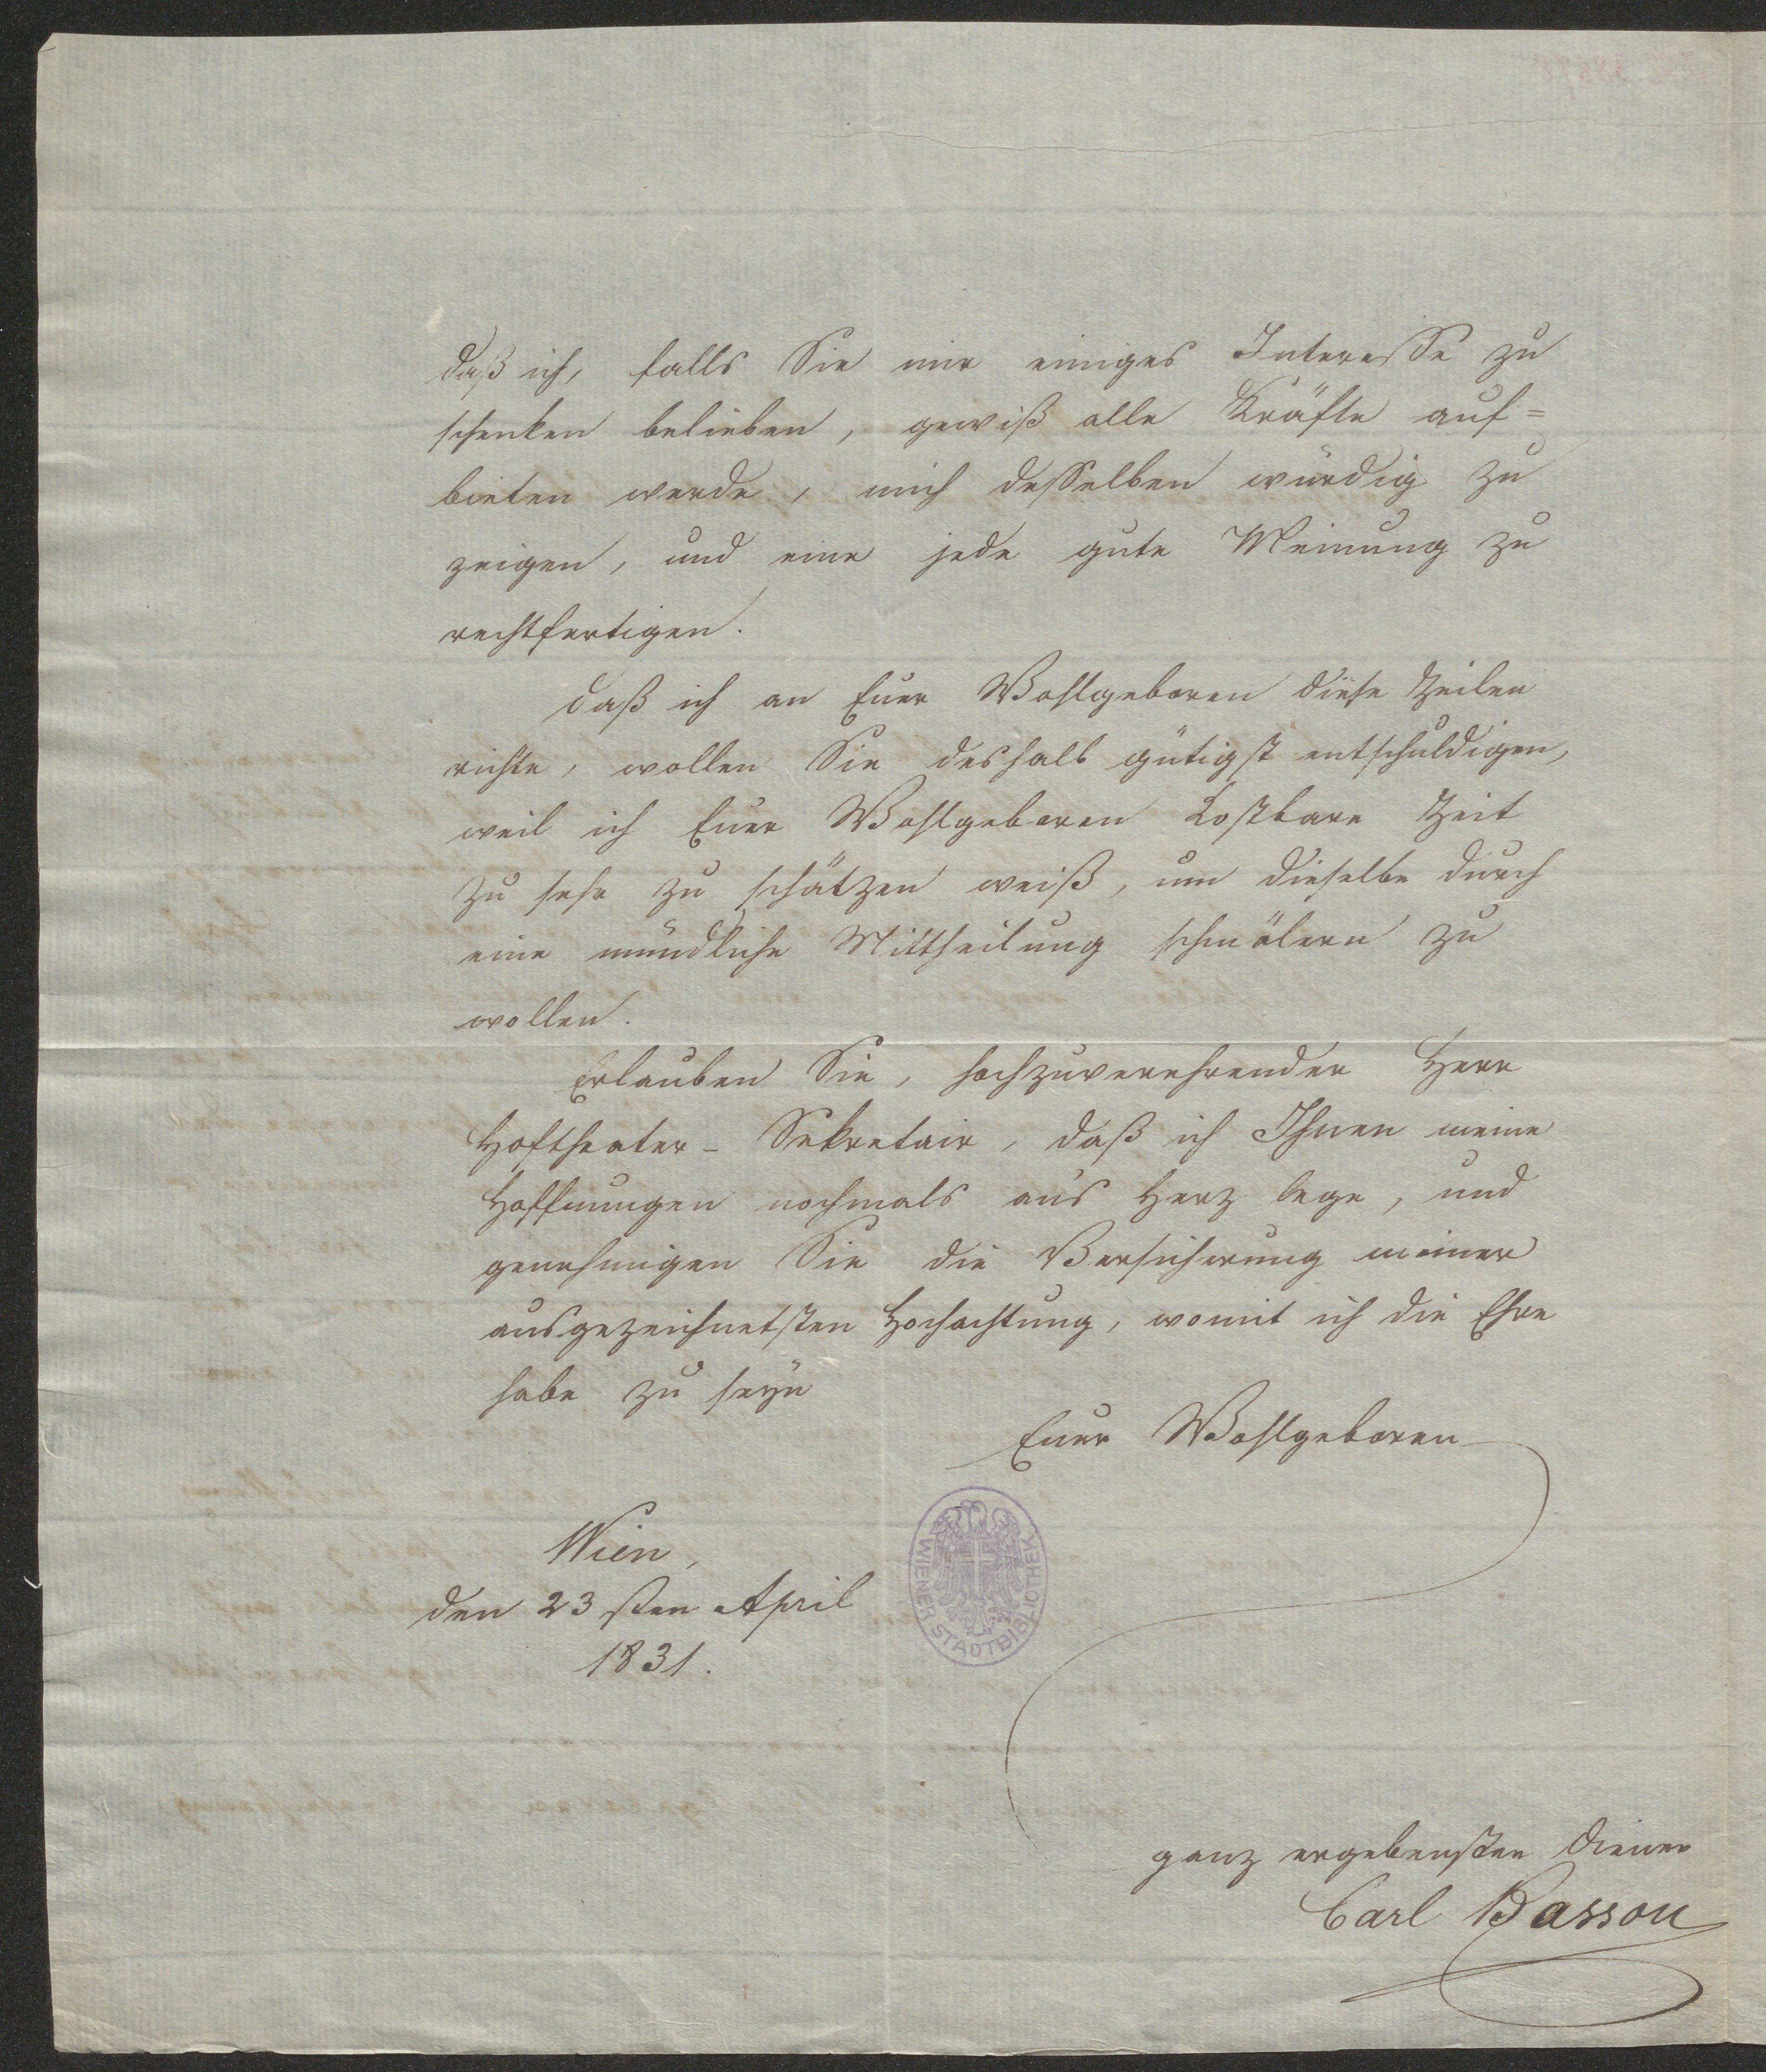 daß ich, falls Sie mir einiges Interesse zu
schenken belieben, gewiß alle Kräfte auf=
bieten werde, mich desselben würdig zu
zeigen, und eine jede gute Meinung zu
rechtfertigen.
Daß ich an Euer Wohlgeboren diese Zeilen
richte, wollen Sie deshalb gütigst entschuldigen,
weil ich Euer Wohlgeboren kostbare Zeit
zu sehr zu schätzen weiß, um dieselbe durch
eine mündliche Mittheilung schmälern zu
wollen.
Erlauben Sie, hochzuverehrender Herr
Hoftheater-Sekretair, daß ich Ihnen meine
Hoffnungen nochmals an's Herz lege, und
genehmigen Sie die Versicherung meiner
ausgezeichnetsten Hochachtung, womit ich die Ehre
habe zu seyn
Euer Wohlgeboren
Wien,
den 23sten April
1831.
WIENER STADTBIBLIOTHEK
ganz ergebenster Diener
Carl Basson